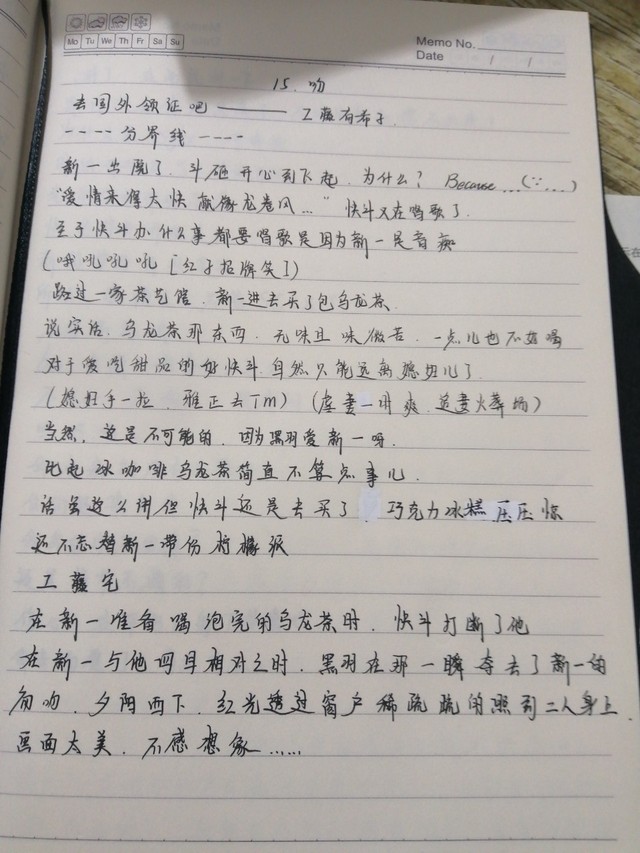 Mo Tu We Th Fr Sa Su
Memo No.
Date / /
15. 吻
去国外领证吧 —— 工藤有希子.
---- 分界线 ----
新一出院了. 斗砸开心到飞起. 为什么? Because...(∵...)
"爱情来得太快就像龙卷风..." 快斗又在唱歌了.
至于快斗办什么事都要唱歌是因为新一是音痴
(哦吼吼吼 [红子招牌笑])
路过一家茶艺馆. 新一进去买了包乌龙茶.
说实话. 乌龙茶那东西. 无味且味微苦. 一点儿也不好喝
对于爱吃甜品的好快斗自然只能远离媳妇儿了.
(媳妇手一拉. 雅正去Tm) (虐妻一时爽. 追妻火葬场)
当然. 这是不可能的. 因为黑羽爱新一呀.
比起冰咖啡乌龙茶简直不算点事儿.
话虽这么讲但快斗还是去买了 巧克力冰糕压压惊
还不忘替新一带份柠檬派
工藤宅
在新一准备喝泡完的乌龙茶时. 快斗打断了他
在新一与他四目相对之时. 黑羽在那一瞬夺去了新一的
初吻. 夕阳西下. 红光透过窗户稀疏疏的照到二人身上
画面太美. 不感想像......